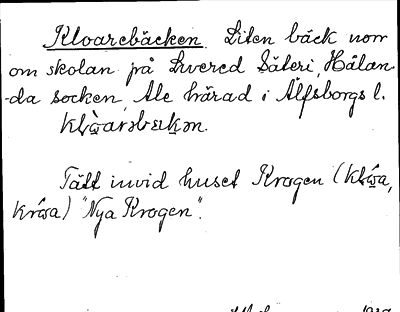 Kloarebäcken Liten bäck norr
om skolan på Livered Säteri, Hålan-
da socken, Ale härad i Älfsborgs l.
Tätt invid huset Krogen (
"Nya Krogen".